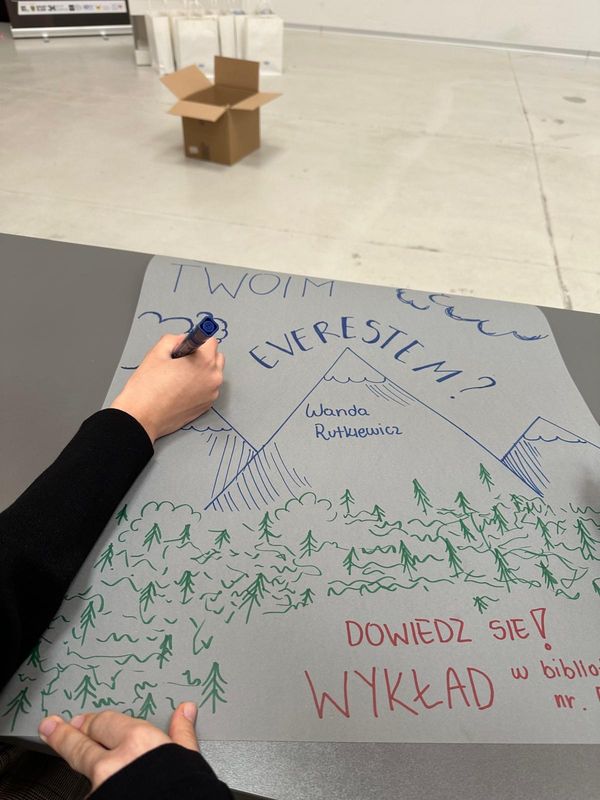 TWOIM
EVERESTEM?
Wanda
Rutkiewicz
DOWIEDZ SIĘ!
WYKŁAD w
nr.